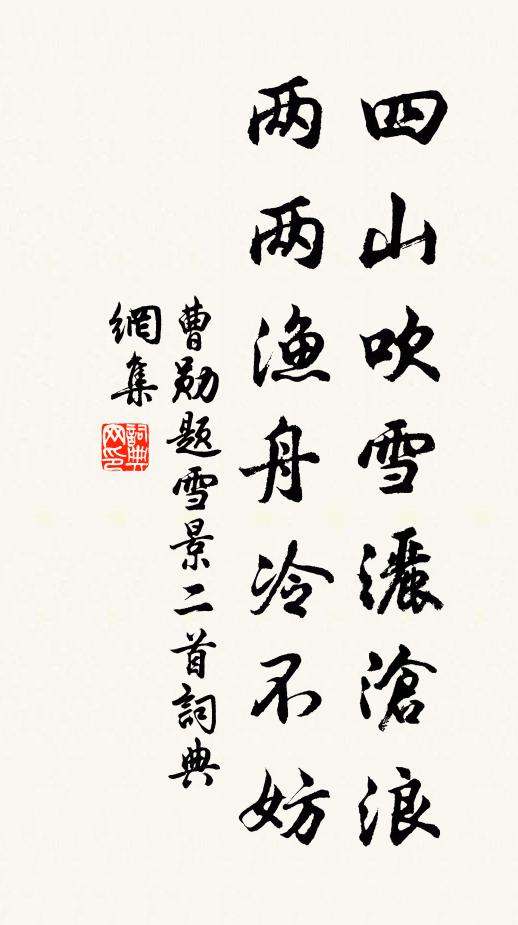 四山吹雪灑滄浪
两两渔舟冷不妨
曹勋题雪景二首詞典
網集
詞典
网印